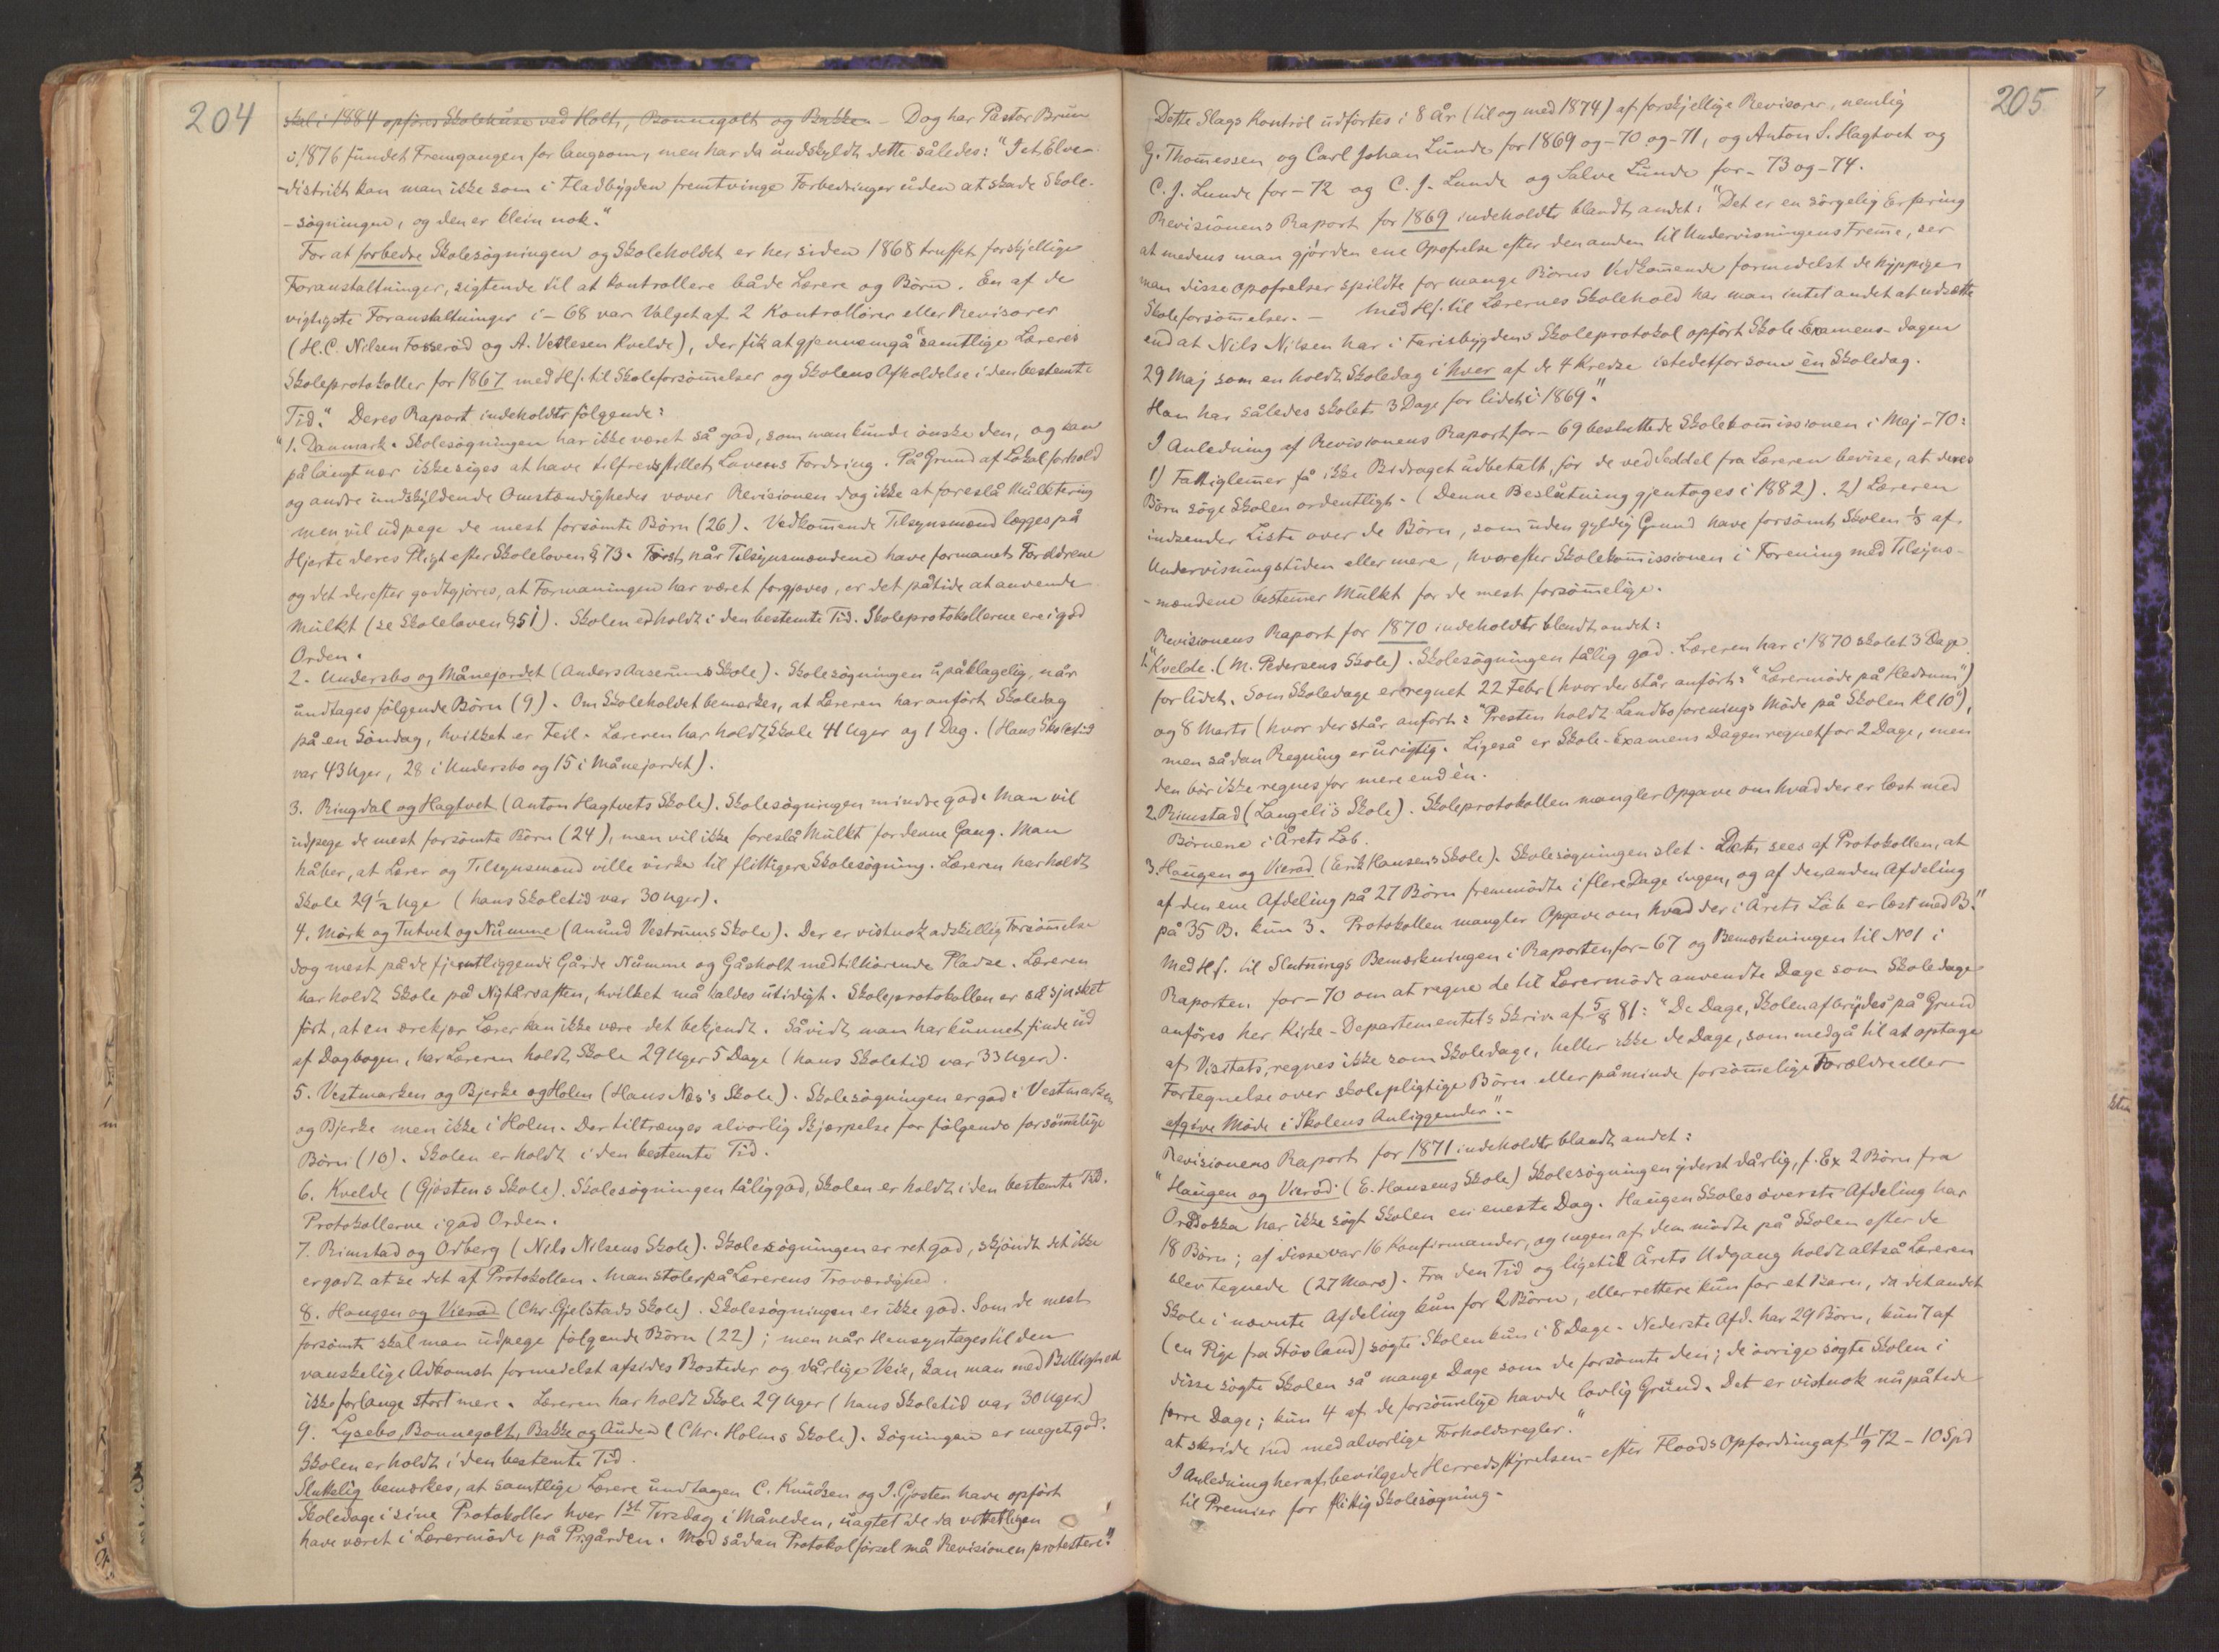 204
skal i 1884 opføres Skolehuse ved Holt, Bonnegolt og Bakke. – Dog har Pastor Bruun
i 1876 fundet Fremgangen for langsom, men har da undskyldt dette således: "I et Elve-
-distrikt kan man ikke som i Fladbygden fremtvinge Forbedringer uden at skade Skole-
-søgningen, og den er klein nok."
For at forbedre Skolesøgningen og Skoleholdet er her siden 1868 truffet forskjellige
Foranstaltninger, sigtende til at kontrollere både Lærere og Børn. En af de
vigtigste Foranstaltninger i – 68 var Valget af 2 Kontrollører eller Revisorer
(H. C. Nilsen Fosserød og A. Vetlesen Kvelde), der fik at gjennemgå "samtlige Læreres
Skoleprotokoller for 1867 med Hs. til Skoleforsømmelser og Skolens Afholdelse i den bestemte
Tid." Deres Raport indeholdt følgende:
"1. Danmark. Skolesøgningen har ikke været så god, som man kunde ønske den, og kan
på langt nær ikke siges at have tilfredsstillet Lovens Fordring. På Grund af Lokalforhold
og andre undskyldende Omstændigheder vover Revisionen dog ikke at foreslå Mulktering
men vil udpege de mest forsømte Børn (26). Vedkommende Tilsynsmænd lægges på
Hjerte deres Pligt efter Skoleloven § 73. Først når Tilsynsmændene have formanet Forældrene
og det derefter godtgjøres, at Formaningen har været forgjæves, er det på tide at anvende
Mulkt (se Skoleloven § 51). Skolen er holdt i den bestemte Tid. Skoleprotokollerne ere i god
Orden.
2. Undersbo og Månejordet (Anders Aaserums Skole). Skolesøgningen upåklagelig, når
undtages følgende Børn (9). Om Skoleholdet bemærkes, at Læreren har anført Skoledag
på en Søndag, hvilket er Feil. Læreren har holdt Skole 41 Uger og 1 Dag. (Hans Skoletid
var 43 Uger, 28 i Undersbo og 15 i Månejordet).
3. Ringdal og Hagtvet (Anton Hagtvets Skole). Skolesøgningen mindre god. Man vil
udpege de mest forsømte Børn (24), men vil ikke foreslå Mulkt for denne Gang. Man
håber, at Lærer og Tilsynsmænd ville virke til flittigere Skolesøgning. Læreren har holdt
Skole 29½ Uge (hans Skoletid var 30 Uger).
4. Mørk og Tutvet og Numme (Anund Vestrums Skole). Der er vistnok adskillig Forsømmelse
dog mest på de fjerntliggende Gårde Numme og Gåsholt med tilhørende Pladse. Læreren
har holdt Skole på Nytårsaften, hvilket må kaldes utidigt. Skoleprotokollen er så sjusket
ført, at en ærekjær Lærer kan ikke være det bekjendt. Såvidt man har kunnet finde ud
af Dagbogen, har Læreren holdt Skole 29 Uger 5 Dage (hans Skoletid var 33 Uger).
5. Vestmarken og Bjerke og Holm (Hans Næs's Skole). Skolesøgningen er god i Vestmarken
og Bjerke men ikke i Holm. Der tiltrænges alvorlig Skjærpelse for følgende forsømmelige
Børn (10). Skolen er holdt i den bestemte Tid.
6. Kvelde (Gjøstens Skole). Skolesøgningen tålig god, Skolen er holdt i den bestemte Tid.
Protokollerne i god Orden.
7. Rimstad og Odberg (Nils Nilsens Skole). Skolesøgningen er ret god, skjøndt det ikke
er godt at se det af Protokollen. Man stoler på Lærerens Troværdighed.
8. Haugen og Vierød (Chr. Gjelstads Skole). Skolesøgningen er ikke god. Som de mest
forsømte skal man udpege følgende Børn (22); men når Hensyn tages til den
vanskelige Adkomst formedelst afsides Bosteder og dårlige Veie, kan man med Billighed
ikke forlange stort mere. Læreren har holdt Skole 29 Uger (hans Skoletid var 30 Uger.)
9. Lysebo, Bonnegolt, Bakke og Auden (Chr. Holms Skole). Søgningen er meget god.
Skolen er holdt i den bestemte Tid.
Sluttelig bemærkes, at samtlige Lærere undtagen C. Knudsen og I. Gjøsten have opført
Skoledage i sine Protokoller hver 1ste Torsdag i Måneden, uagtet de da vitterligen
have været i Lærermøde på Prgården. Mod sådan Protokolførsel må Revisionen protestere."
205
Dette Slags Kontrol udførtes i 8 År (til og med 1874) af forskjellige Revisorer, nemlig
G. Thommessen og Carl Johan Lunde for 1869 og – 70 og – 71, og Anton S. Hagtvet og
C. J. Lunde for – 72 og C. J. Lunde og Salve Lunde for – 73 og – 74.
Revisionens Raport for 1869 indeholdt blandt andet: "Det er en sørgelig Erfaring
at medens man gjør den ene Opofrelse efter den anden til Undervisningens Fremme, ser
man disse Opofrelser spildte for mange Børns Vedkommende formedelst de hyppige
Skoleforsømmelser. – Med Hs. til Lærernes Skolehold har man intet andet at udsætte
end at Nils Nilsen har i Farisbygdens Skoleprotokol opført Skole Examens-dagen
29 Maj som en holdt Skoledag i hver af de 4 Kredse istedetfor som èn Skoledag.
Han har således skolet 3 Dage for lidet i 1869."
I Anledning af Revisionens Raport for – 69 besluttede Skolekommissionen i Maj – 70:
1) Fattiglemmer få ikke Bidraget udbetalt, før de ved Seddel fra Læreren bevise, at deres
Børn søge Skolen ordentligt. (Denne Beslutning gjentoges i 1882). 2) Læreren
indsender Liste over de Børn, som uden gyldig Grund have forsømt Skolen ⅓ af
Undervisningstiden eller mere, hvorefter Skolekommissionen i Forening med Tilsyns-
-mændene bestemmer Mulkt for de mest forsømmelige.
Revisionens Raport for 1870 indeholdt blandt andet:
1. "Kvelde. (M. Pedersens Skole). Skolesøgningen tålig god. Læreren har i 1870 skolet 3 Dage
for lidet. Som Skoledage er regnet 22 Febr (hvor der står anført: "Lærermøde på Hedrum")
og 8 Marts (hvor der står anført: "Presten holdt Landboforenings Møde på Skolen kl 10"),
men sådan Regning er urigtig. Ligeså er Skole-Examens Dagen regnet for 2 Dage, men
den bør ikke regnes for mere end èn.
2. Rimstad (Langeli's Skole). Skoleprotokollen mangler Opgave om hvad der er læst med
Børnene i Årets Løb.
3. Haugen og Vierød (Erik Hansens Skole). Skolesøgningen slet. Det sees af Protokollen, at
af den ene Afdeling på 27 Børn fremmødte i flere Dage ingen, og af den anden Afdeling
på 35 B. kun 3. Protokollen mangler Opgave om hvad der i Årets Løb er læst med B."
Med Hs. til Slutnings Bemærkningen i Raporten for – 67 og Bemærkningen til No 1 i
Raporten for – 70 om at regne de til Lærermøde anvendte Dage som Skoledage
anføres her Kirke-Departementets Skriv. af 5/8 81: "De Dage, Skolen afbrydes på Grund
af Visitats, regnes ikke som Skoledage, heller ikke de Dage, som medgå til at optage
Fortegnelse over skolepligtige Børn eller påminde forsømmelige Forældre eller
afgive Møde i Skolens Anliggender". –
Revisionens Raport for 1871 indeholdt blandt andet:
"Haugen og Vierød: (E. Hansens Skole) Skolesøgningen yderst dårlig, f. Ex 2 Børn fra
Ordsokka har ikke søgt Skolen en eneste Dag. Haugen Skoles øverste Afdeling har
18 Børn; af disse var 16 Konfirmander, og ingen af dem mødte på Skolen efter de
blev tegnede (27 Mars). Fra den Tid og ligetil Årets Udgang holdt altså Læreren
Skole i nævnte Afdeling kun for 2 Børn, eller rettere kun for et Barn, da det andet
(en Pige fra Stövland) søgte Skolen kun i 8 Dage. Nederste Afd. har 29 Børn, kun 7 af
disse søgte Skolen så mange Dage som de forsømte den; de øvrige søgte Skolen i
færre Dage; kun 4 af de forsømmelige havde lovlig Grund. Det er vistnok nu på tide
at skride ind med alvorlige Forholdsregler."
I Anledning heraf bevilgede Herredsstyrelsen – efter Floods Opfordring af 11/9 72 – 10 Spd
til Premier for flittig Skolesøgning.